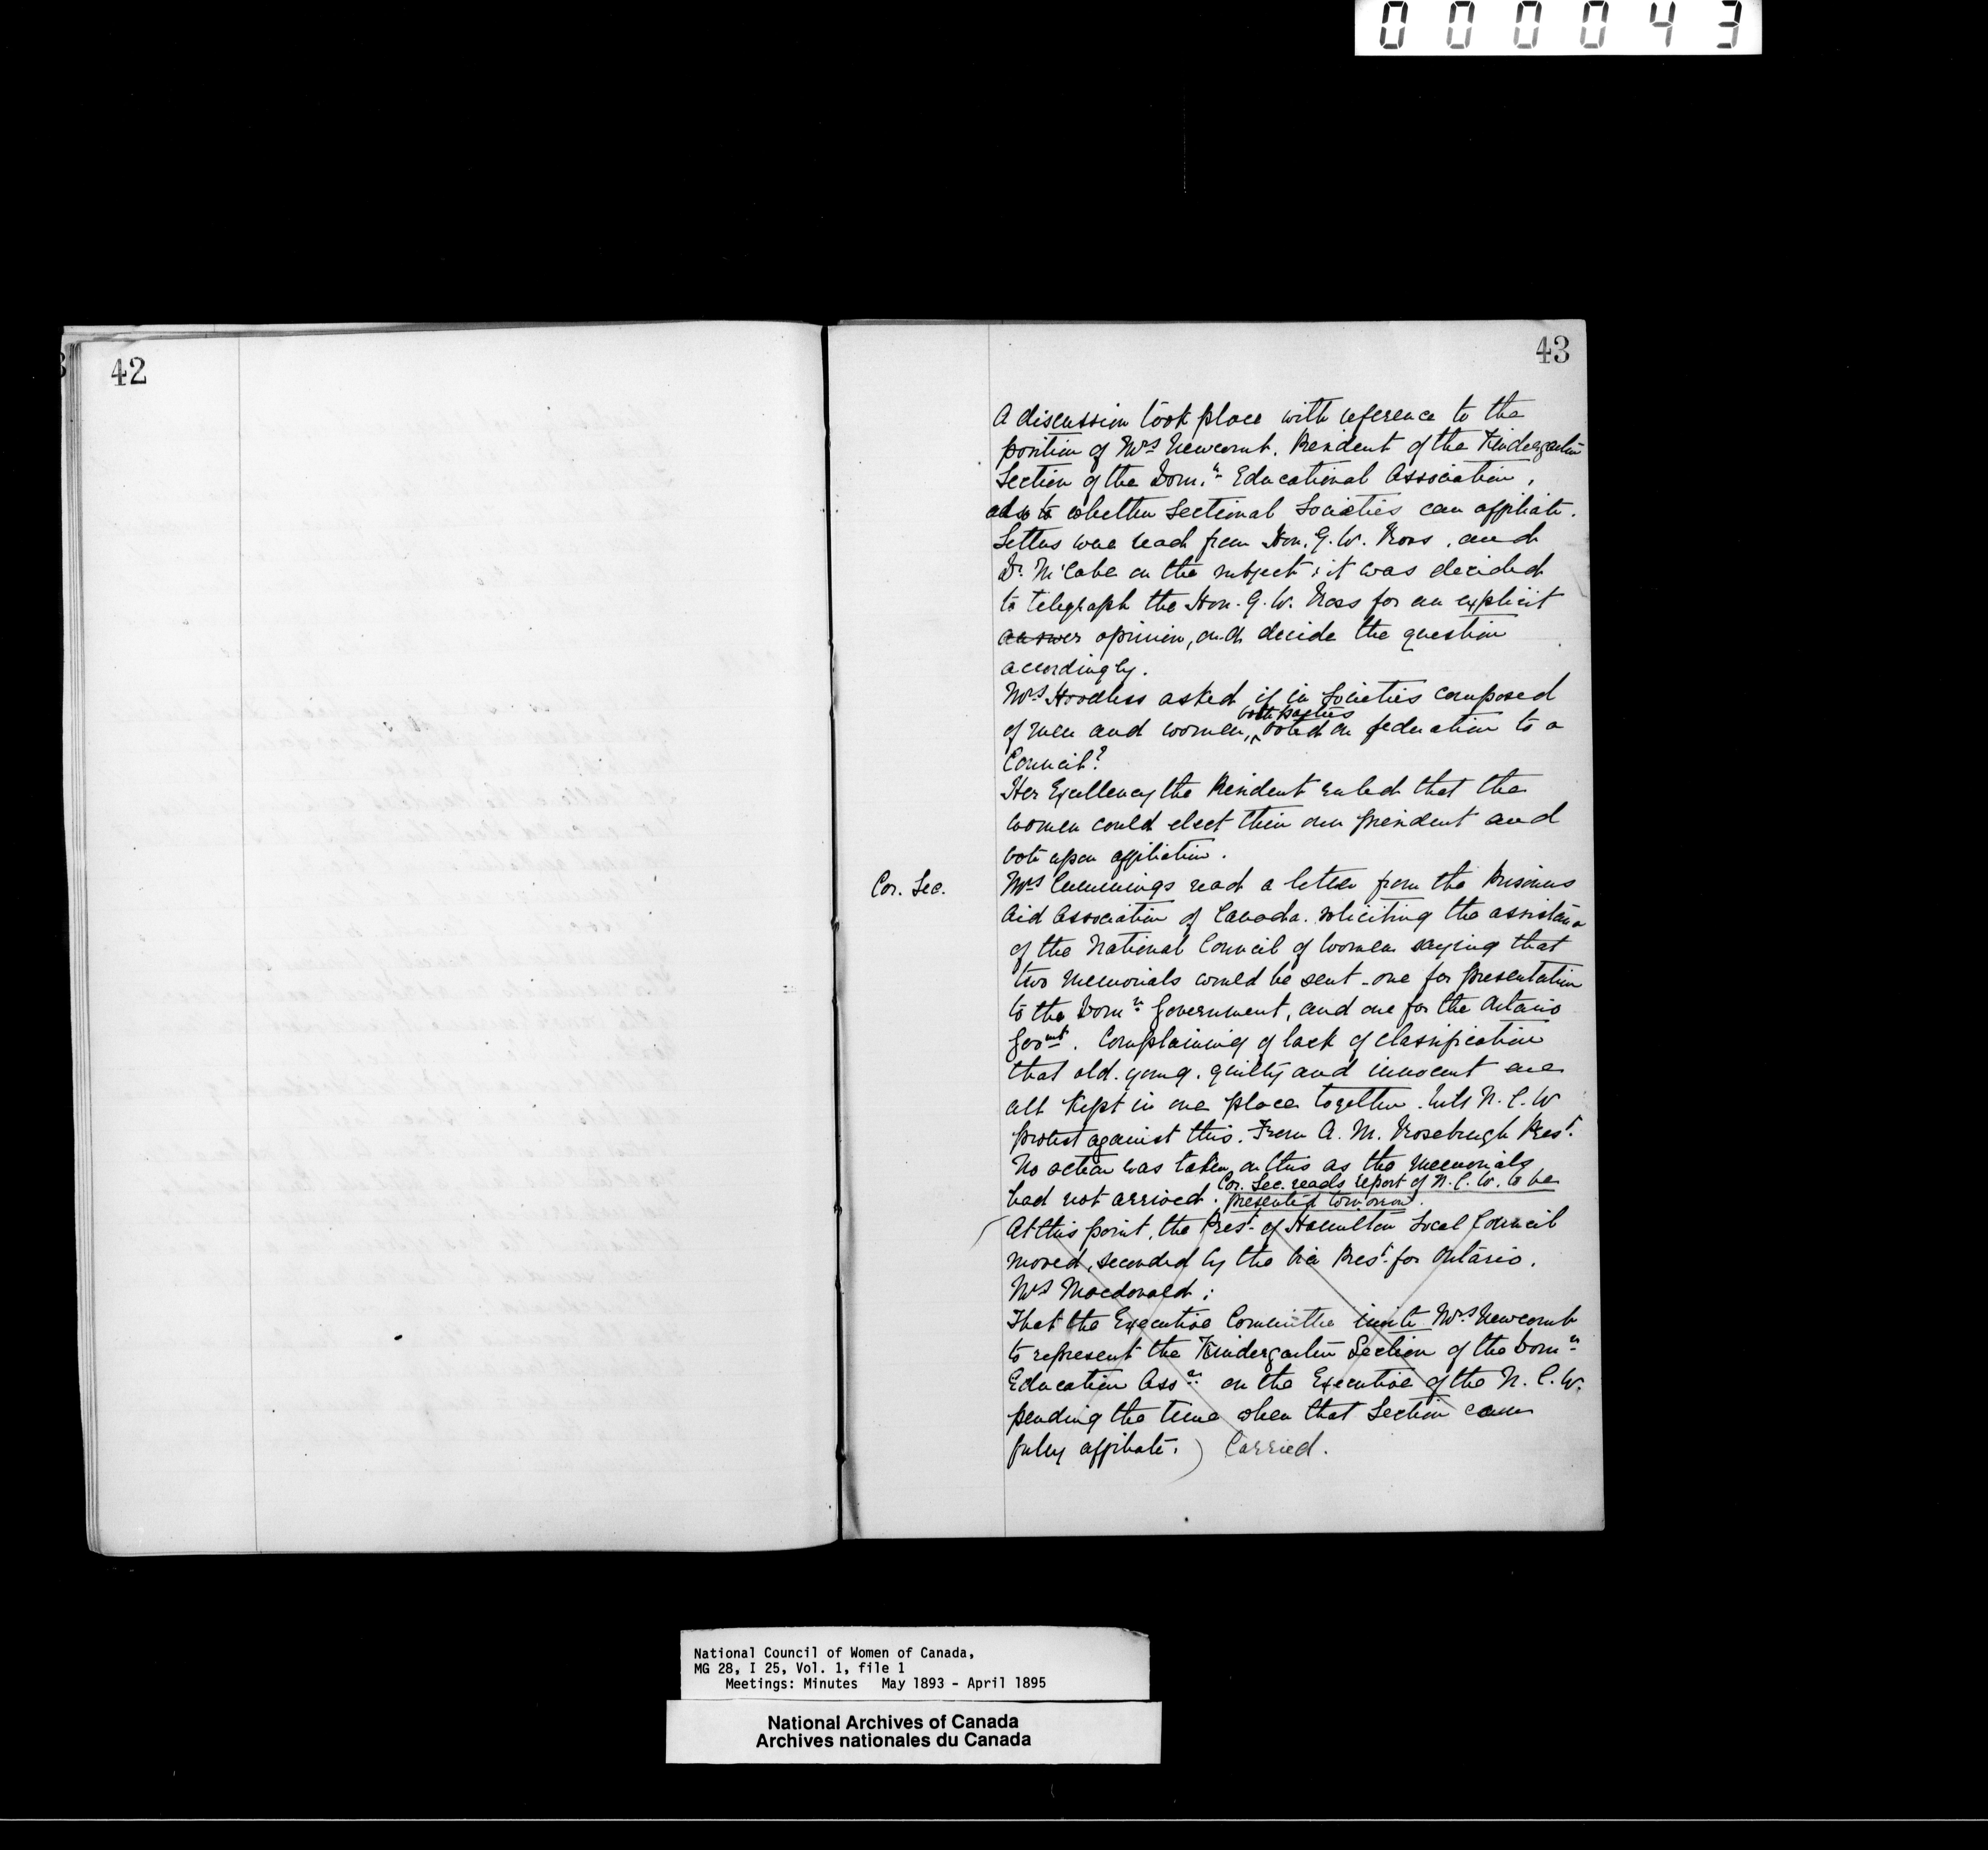 000043
42
43
A discussion took place with reference to the
position of Mrs Newcomb. President of the Kindergarten
Section of the Domn. Educational Association,
also to whether Sectional Societies can affiliate.
Letters were read from Hon. G. W. Ross, and
Dr. McCabe on the subject; it was decided
to telegraph the Hon. G. W. Ross for an explicit
answer opinion, and decide the question
accordingly.
Mrs Hoodless asked if in Societies composed
both parties
of men and women, ^ voted on federation to a
Council?
Her Excellency the President ruled that the
women could elect their own president and
vote upon affiliation.
Cor. Sec.
Mrs Cummings read a letter from the Prisoners
Aid Association of Canada. soliciting the assistance
of the National Council of Women saying that
two Memorials would be sent - one for presentation
to the Domn Government, and one for the Ontario
Govmt. Complaining of lack of classification
that old. young. guilty and innocent are
all kept in one place together. Will N. C. W
protest against this. From A. M. Rosebrugh Prest.
No action was taken on this as the Memorials
Cor. Sec. reads report of N. C. W. to be
had not arrived. presented tomorrow.
(At this point, the Prest. of Hamilton Local Council
moved, seconded by the Vice Prest. for Ontario.
Mrs Macdonald;
That the Executive Committee invite Mrs Newcomb
to represent the Kindergarten Section of the Domn
Education Assn on the Executive of the N. C. W.
pending the time when that Section can
fully affiliate.) Carried.
National Council of Women of Canada,
MG 28, I 25, Vol. 1, file 1
Meetings: Minutes May 1893 - April 1895
National Archives of Canada
Archives nationales du Canada